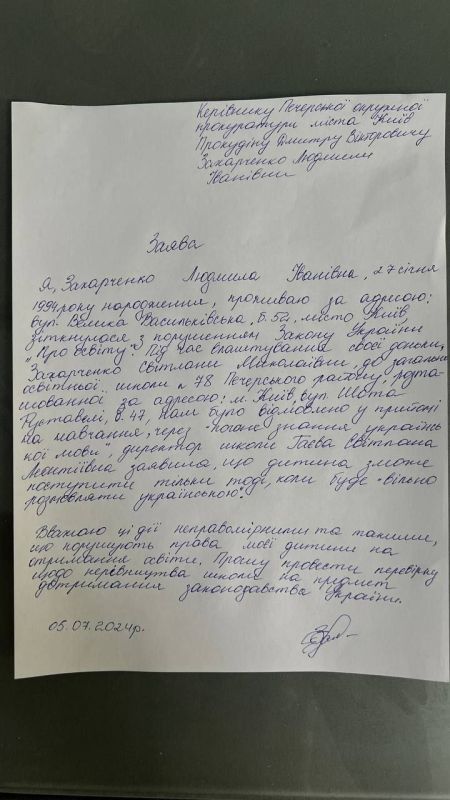 Керівнику Печерської окружної
прокуратури міста Київ
Прокудіну Дмитру Вікторовичу
Захарченко Людмили
Іванівни
Заява
Я, Захарченко Людмила Іванівна, 27 січня
1994 року народження, проживаю за адресою:
вул. Велика Васильківська, б. 52, місто Київ
зіткнулася з порушенням Закону України
"Про освіту". Під час влаштування своєї доньки,
Захарченко Світлани Миколаївни, до загально
освітньої школи № 78 Печерського району, розта-
шованної за адресою: м. Київ, вул. Шота
Руставелі, б. 47, нам було відмовлено у прийомі
на навчання, через "погане знання українсь
кої мови", директор школи Гаєва Світлана
Леонтіївна заявила, що дитина зможе
поступити тільки тоді, коли буде "вільно
розмовляти українською".
Вважаю ці дії неправомірними та такими,
що порушують права моєї дитини на
отримання освіти. Прошу провести перевірку
щодо керівництва школи на предмет
дотримання законодавства України.
05.07.2024р.